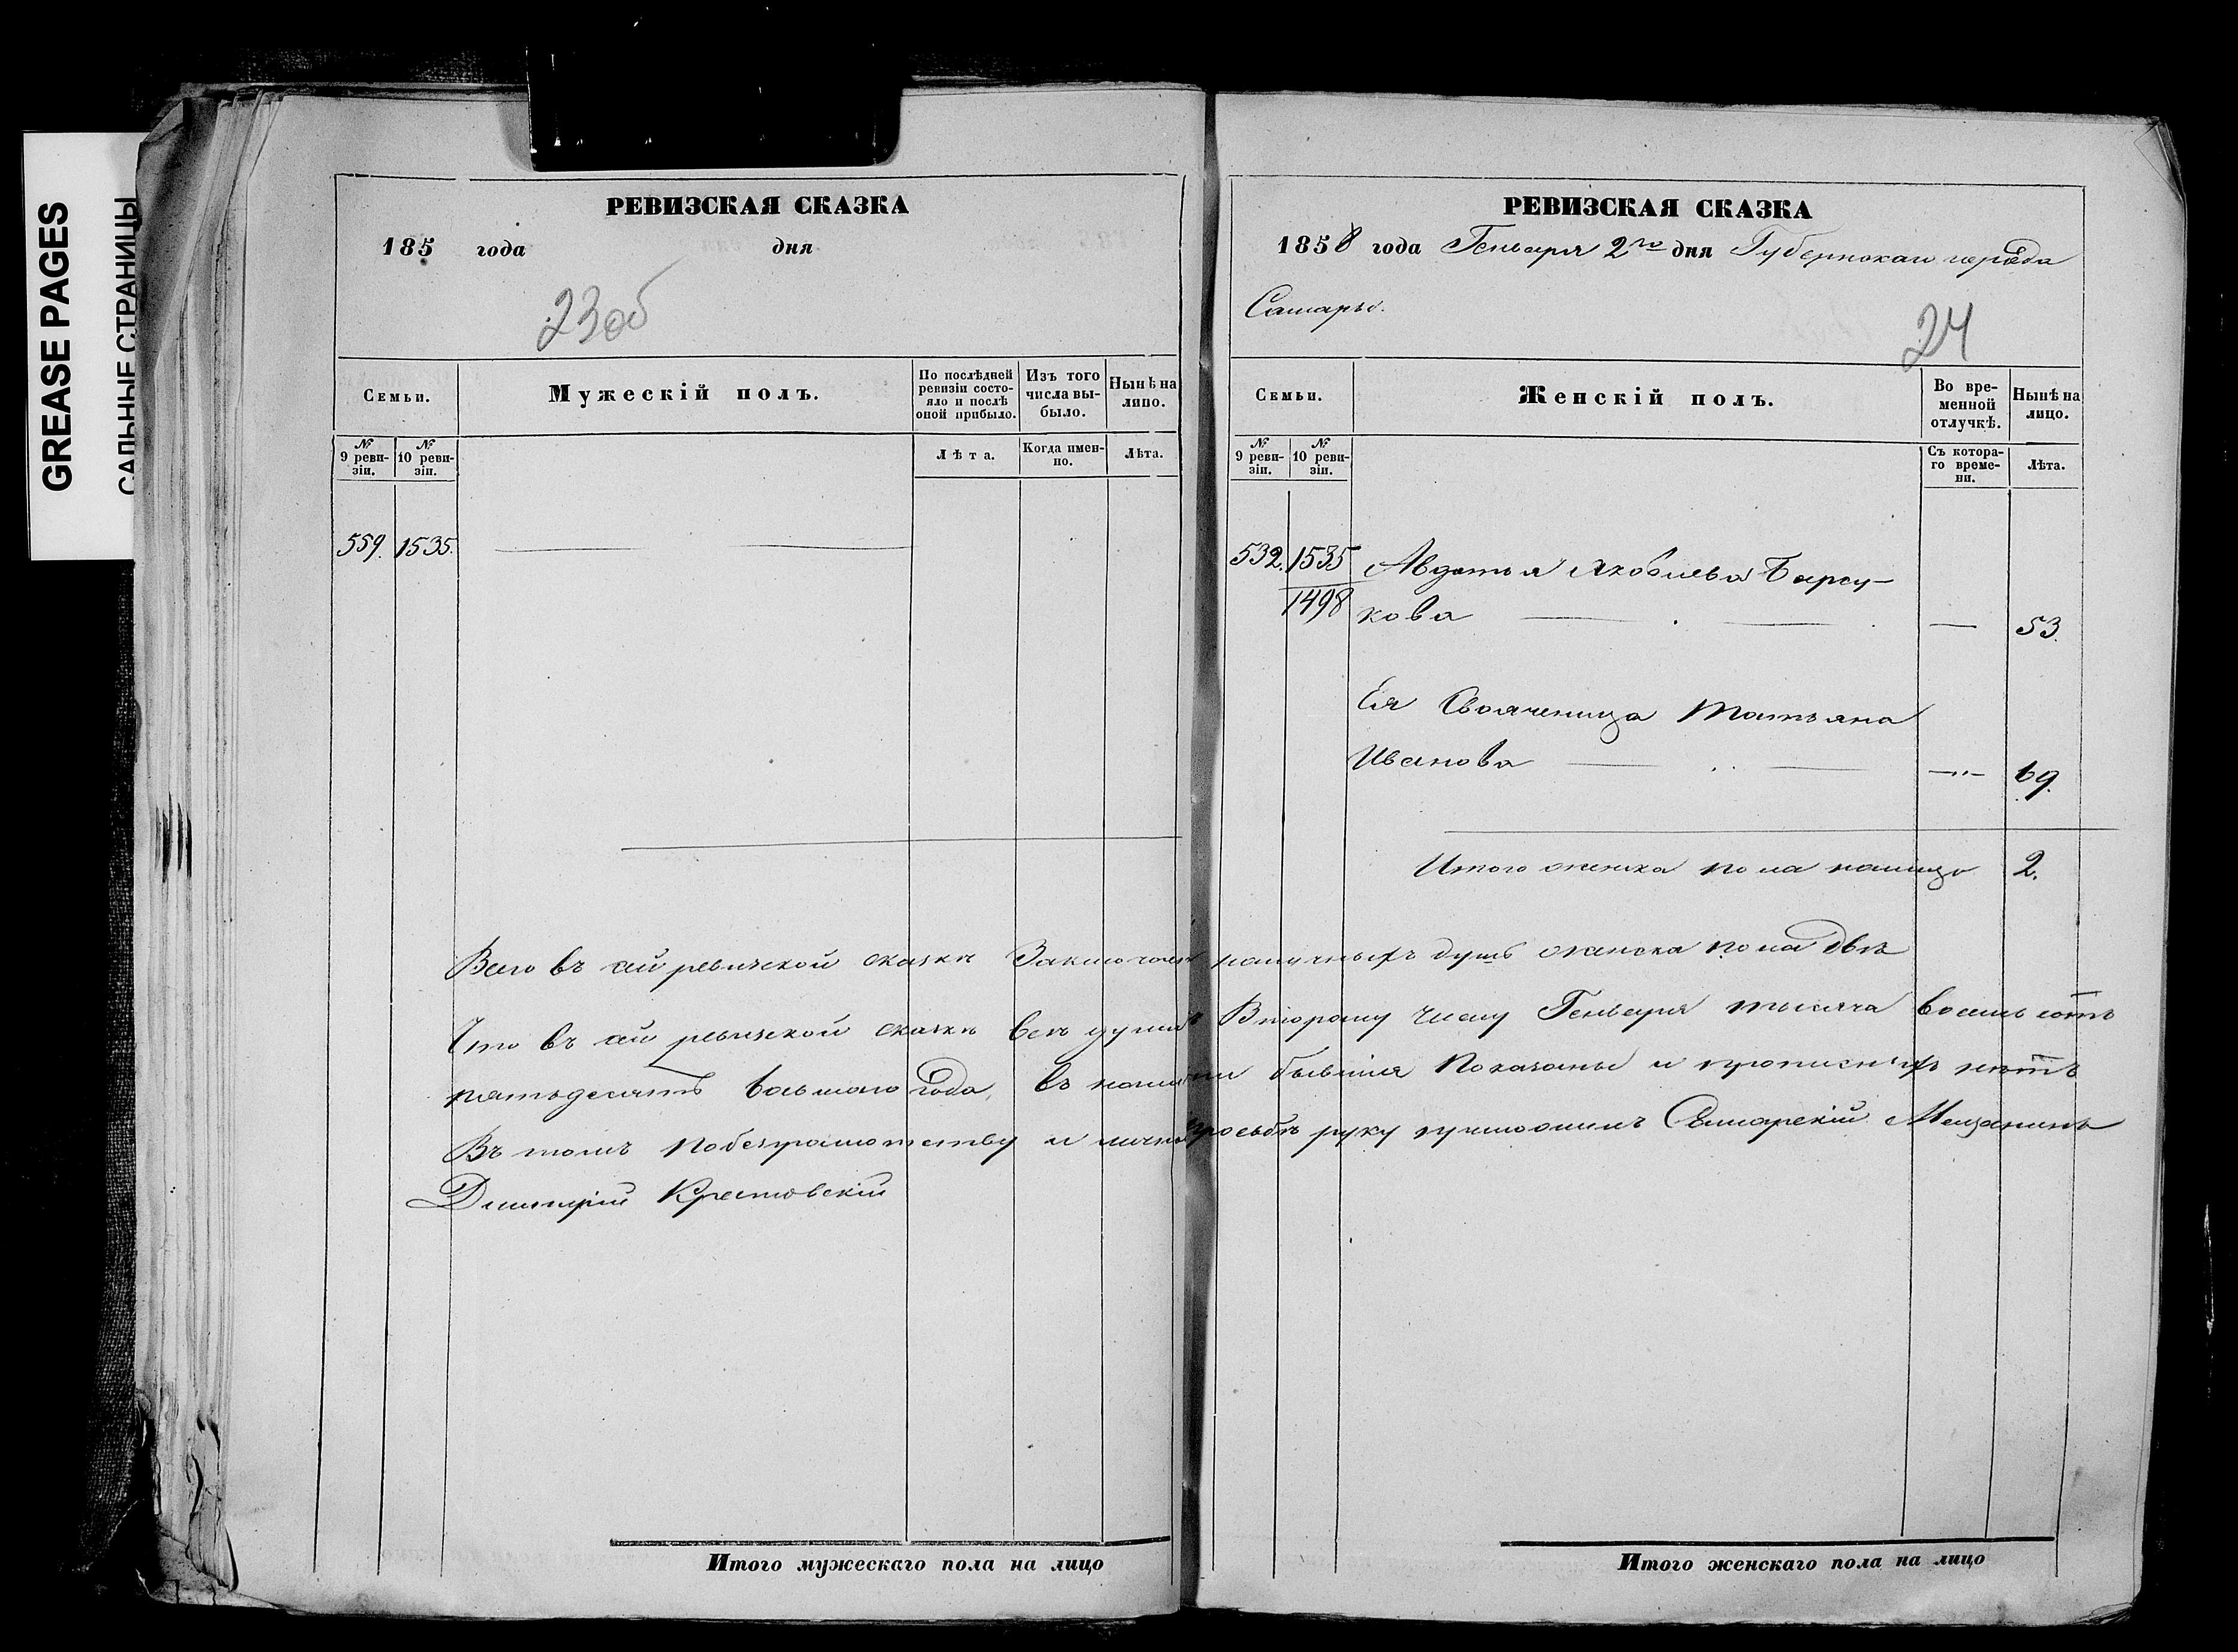 GREASE PAGES
САЛЬНЫЕ СТРАНИЦЫ
РЕВИЗСКАЯ СКАЗКА
185 года дня
23об
Семьи.
Мужескій полъ.
По послѣдней ревизіи состояло и послѣ оной прибыло.
Изъ того числа выбыло.
Нынѣ на лицо.
№ 9 ревизіи.
№ 10 ревизіи.
Лѣта.
Когда именно.
Лѣта.
559. 1535.
РЕВИЗСКАЯ СКАЗКА
1858 года Генваря 2го дня Губернскаго города
Самары.
24
Семьи.
Женскій полъ.
Во временной отлучкѣ.
Нынѣ на лицо.
№ 9 ревизіи.
№ 10 ревизіи.
Съ котораго времени.
Лѣта.
532. 1535 Авдотья Яковлева Барсу-
1498 кова — 53.
Ея Свояченица Татьяна
Иванова — 69.
Итого женска пола налицо 2.
Всего въ сей ревизской сказкѣ Заключает наличныхъ душъ женска пола двѣ
Что въ сей ревизской сказкѣ всѣ души Второму Числу Генваря тысяча восемьсотъ
пятьдесятъ восьмаго года, въ наличіи бывшія Показаны и прописныхъ нѣтъ
Въ томъ по безграмотству и личной просьбѣ руку приложилъ Самарскій Мещанинъ
Димитрій Крестовскій
Итого мужескаго пола на лицо
Итого женскаго пола на лицо